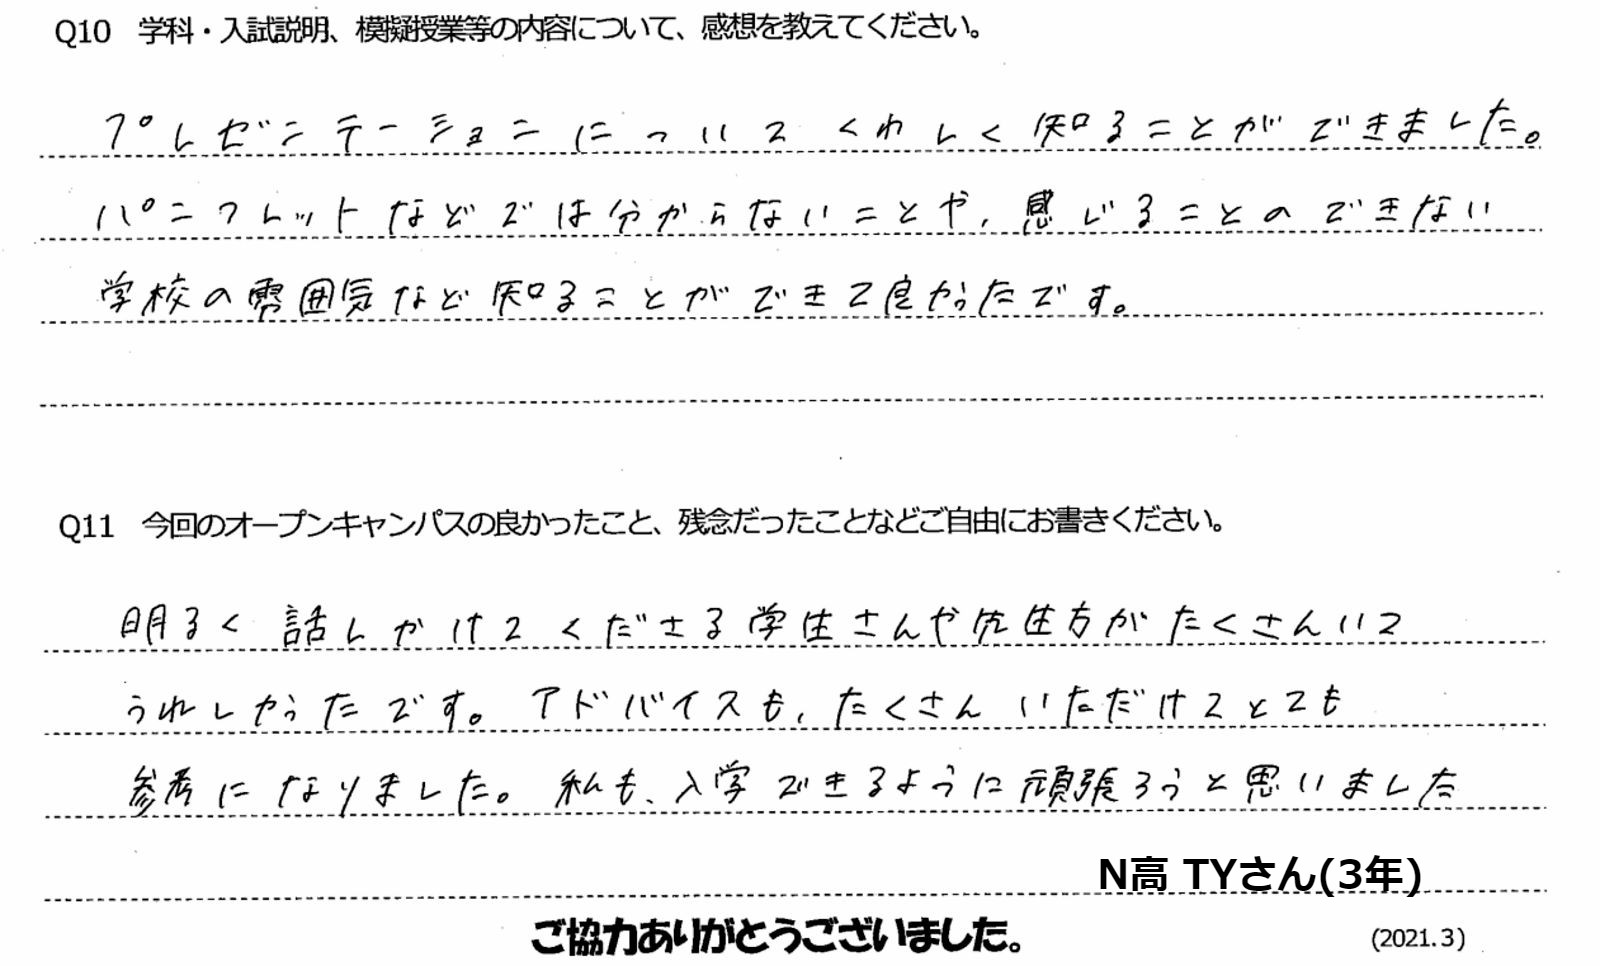 Q10 学科・入試説明、模擬授業等の内容について、感想を教えてください。
プレゼンテーションについてくわしく知ることができました。
パンフレットなどでは分からないことや、感じることのできない
学校の雰囲気など知ることができて良かったです。
Q11 今回のオープンキャンパスの良かったこと、残念だったことなどご自由にお書きください。
明るく話しかけてくださる学生さんや先生方がたくさんいて
うれしかったです。アドバイスも、たくさんいただけてとても
参考になりました。私も、入学できるように頑張ろうと思いました
N高 TYさん(3年)
ご協力ありがとうございました。
(2021.3)